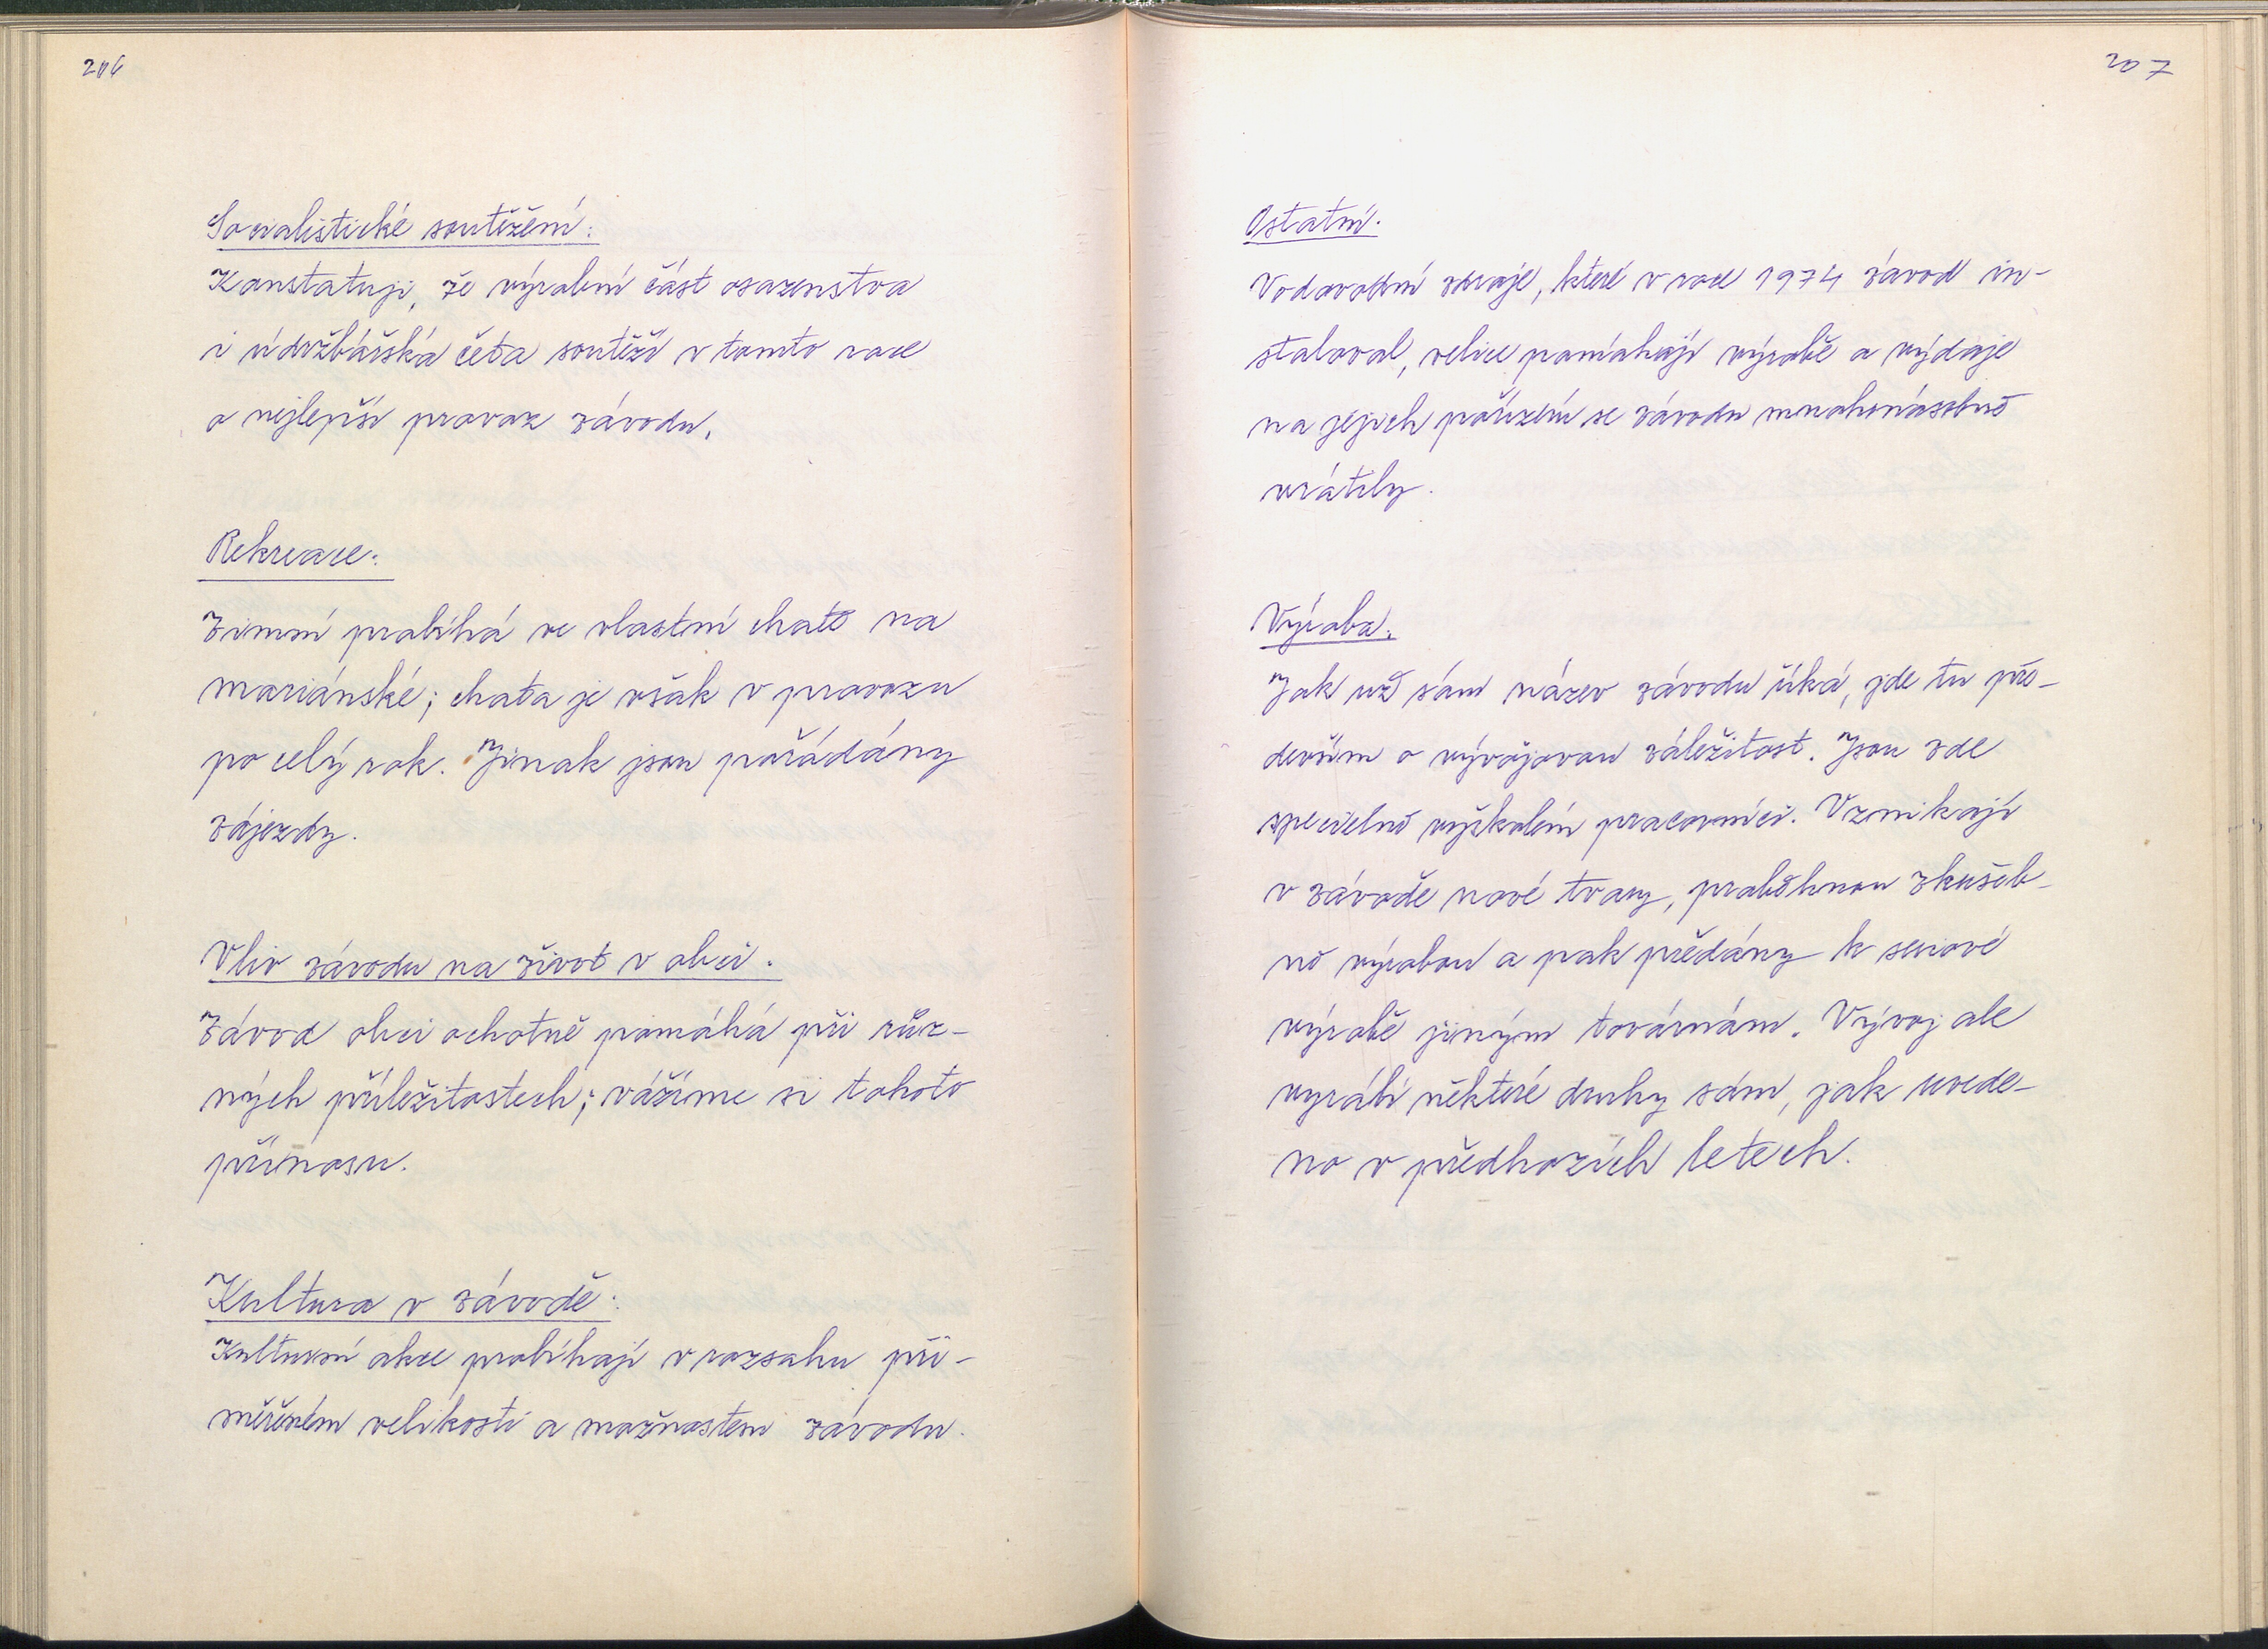 206
Socialistické soutěžení:
Konstatuji, že výrobní část osazenstva
i údržbářská četa soutěží v tomto roce
o nejlepší provoz závodu.
Rekreace:
Zimní probíhá ve vlastní chatě na
Mariánské; chata je však v provozu
po celý rok. Jinak jsou pořádány
zájezdy.
Vliv závodu na život v obci.
Závod obci ochotně pomáhá při růz-
ných příležitostech; vážíme si tohoto
přínosu.
Kultura v závodě:
Kulturní akce probíhají v rozsahu při-
měřeném velikosti a možnostem závodu.
207
Ostatní.
Vodovodní zdroje, které v roce 1974 závod in-
staloval, velice pomáhají výrobě a výdaje
na jejich pořízení se závodu mnohonásobně
vrátily.
Výroba.
Jak už sám název závodu říká, jde tu pře-
devším o vývojovou záležitost. Jsou zde
specielně vyškolení pracovníci. Vznikají
v závodě nové tvary, proběhnou zkušeb-
ně výrobou a pak předány k seriové
výrobě jiným továrnám. Vývoj ale
vyrábí některé druhy sám, jak uvede-
no v předhozích letech.